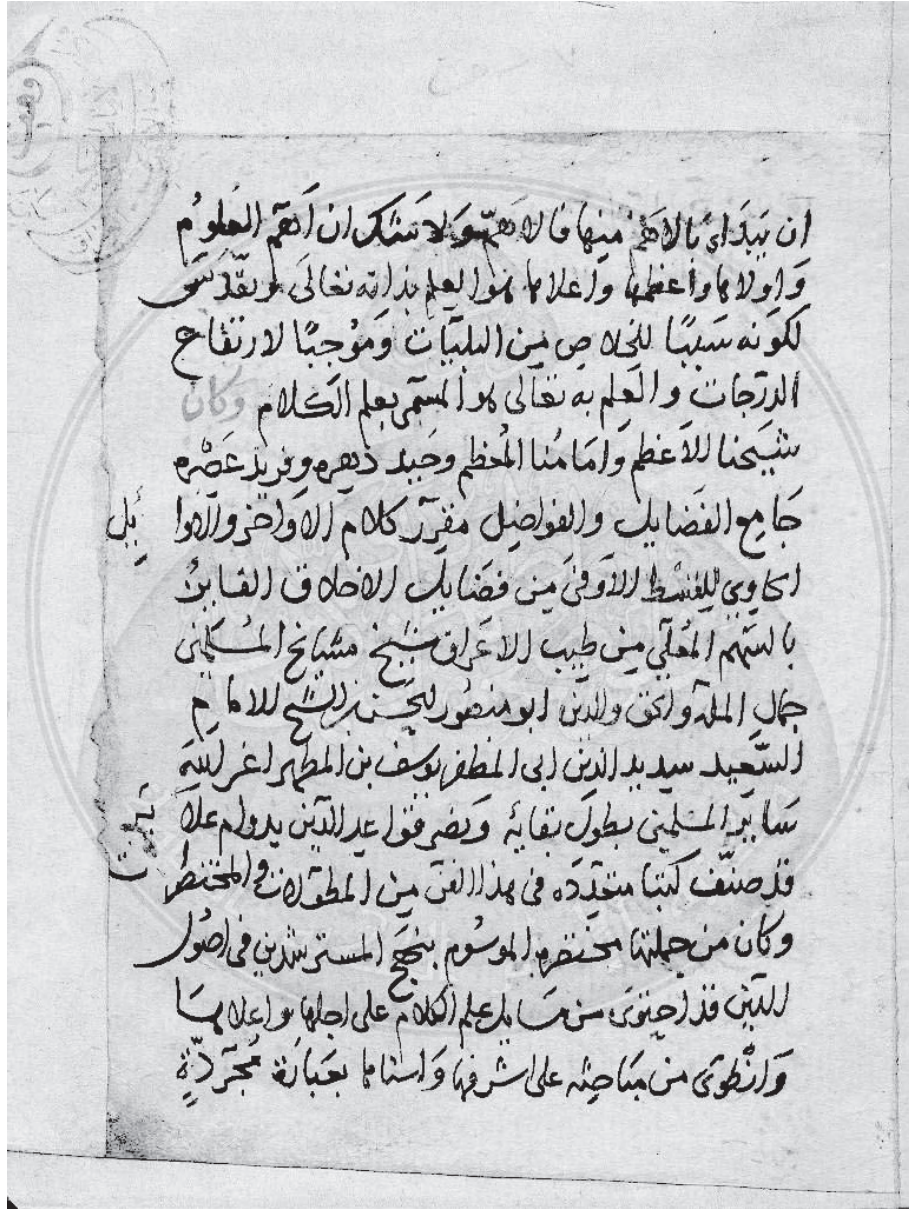 ان يبداء بالاهم منها فالاهم ولا شك ان اهم العلوم
واولاها واعظمها واعلاها هو العلم بذاته تعالى وتقدس
لكونه سببا للخلاص من البليات وموجبا لارتفاع
الدرجات والعلم به تعالى هو المسمى بعلم الكلام وكان
شيخنا الاعظم وامامنا المعظم وحيد دهره وفريد عصره
جامع الفضايل والفواضل مقرر كلام الاواخر والاوا
يل
الحاوي للقسط الاوفى من فضايل الاخلاق الفايز
بالسهم المعلى من طيب الاعراق شيخ مشايخ المسلمين
جمال الملة والحق والدين ابو منصور الحسن بن الشيخ الامام
السعيد سديد الدين ابى المظفر يوسف بن المطهر اعز الله
ساير المسلمين بطول بقايه وبدوام علا
قد صنف كتبا متعددة فى هذا الفن من المطولات والمختصرا
ت
وكان من جملتها مختصره الموسوم بنهج المسترشدين فى اصول
الدين قد احتوى من مسايل علم الكلام على اجلها واعلاها
وانطوى من مباحثه على اشرفها واسناها بعبارة مجردة